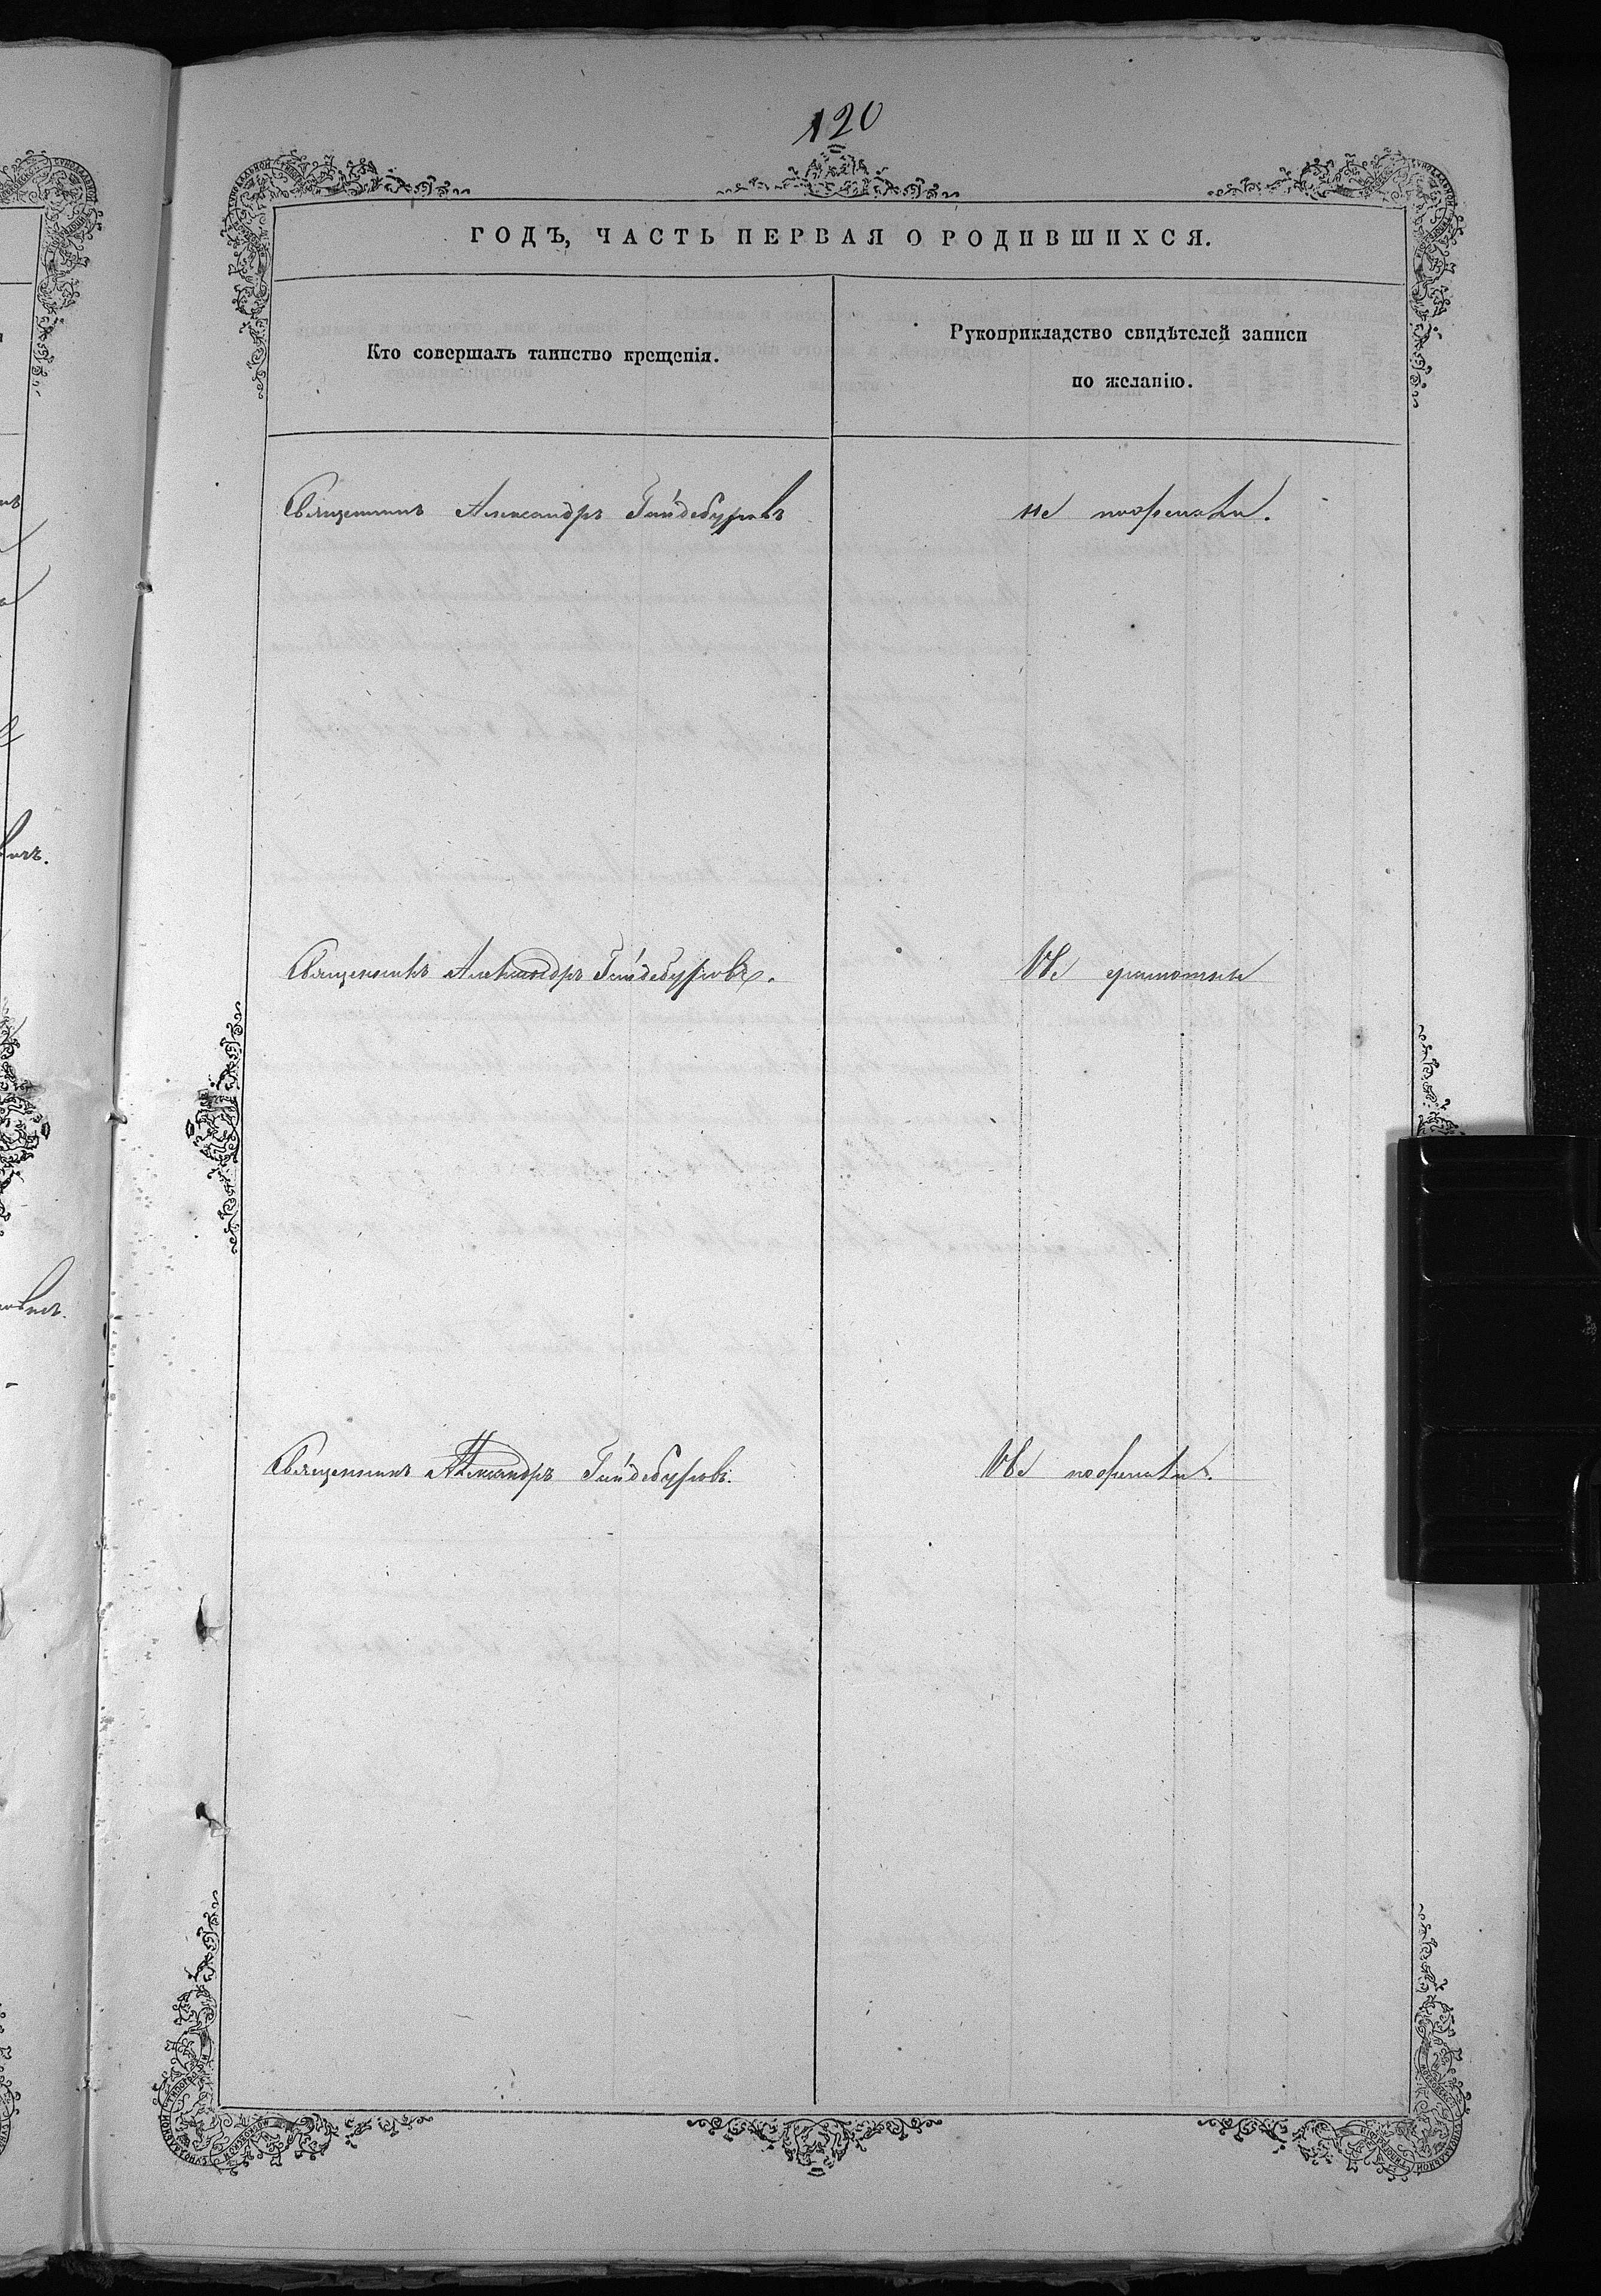 120
ГОДЪ, ЧАСТЬ ПЕРВАЯ О РОДИВШИХСЯ.
Кто совершалъ таинство крещенія.
Рукоприкладство свидѣтелей записи
по желанію.
Священникъ Александръ Гайдебуровъ
не пожелали.
Священникъ Александръ Гайдебуровъ.
Не грамотны
Священникъ Александръ Гайдебуровъ.
Не пожелали.